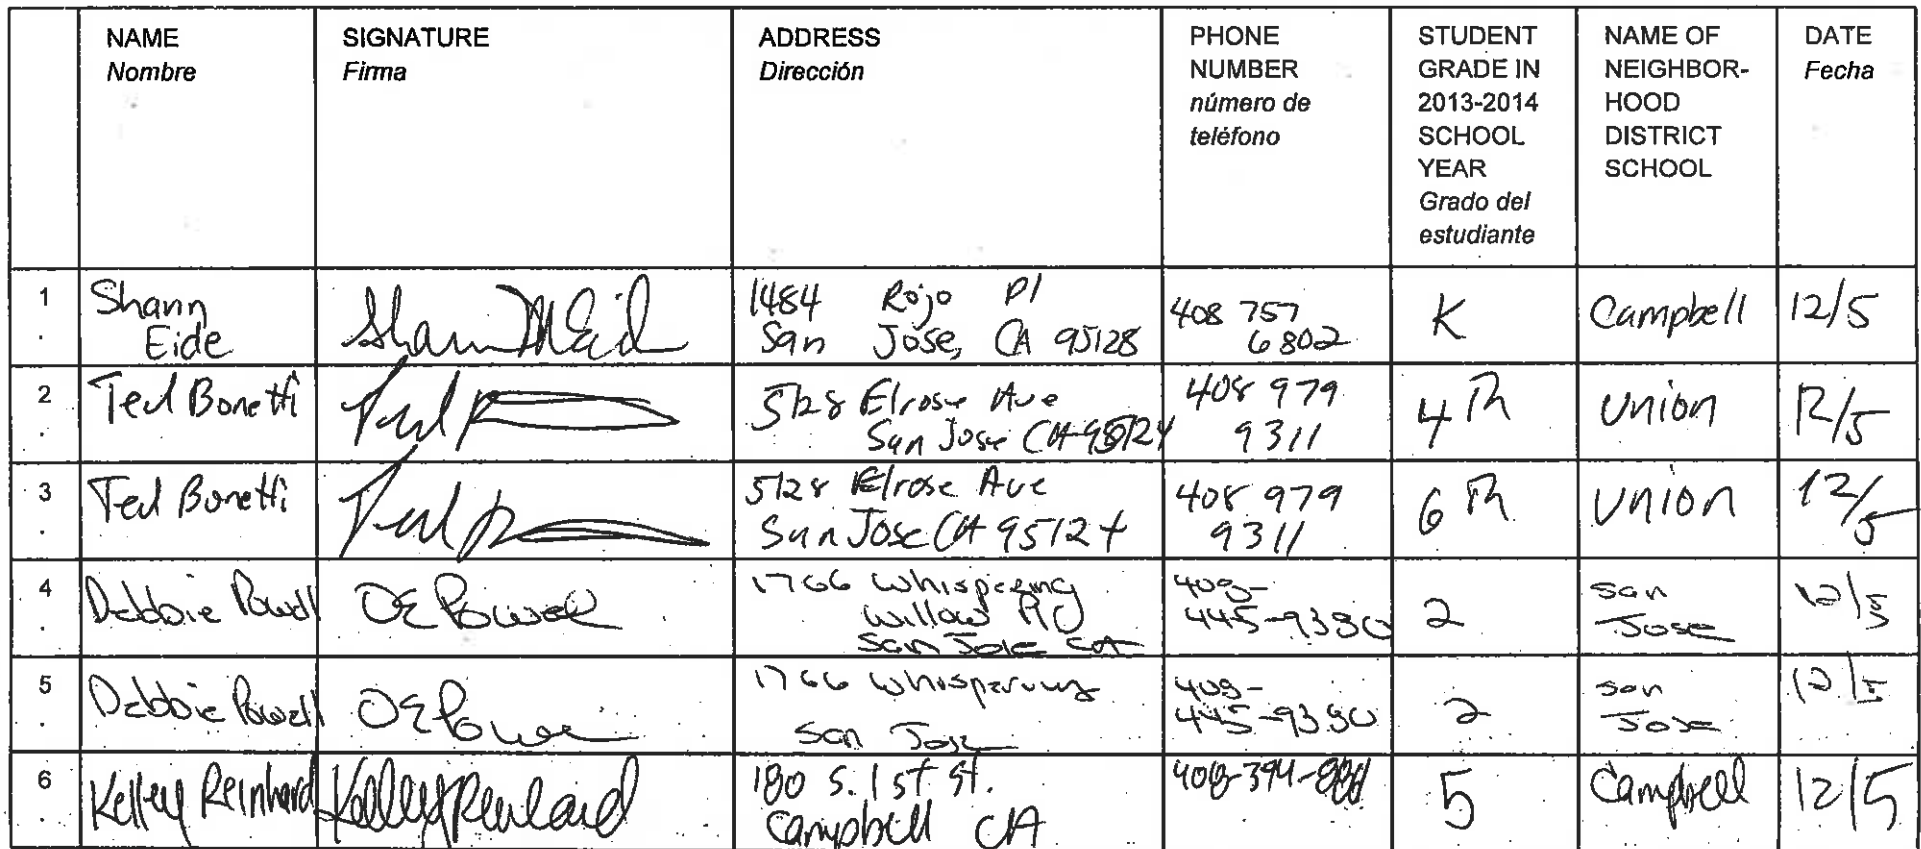 NAME
Nombre
SIGNATURE
Firma
ADDRESS
Dirección
PHONE
NUMBER
número de
teléfono
STUDENT
GRADE IN
2013-2014
SCHOOL
YEAR
Grado del
estudiante
NAME OF
NEIGHBOR-
HOOD
DISTRICT
SCHOOL
DATE
Fecha
1
.
Shann
Eide
1484 Rojo Pl
San Jose, CA 95128
408 757
6802
K
Campbell
12/5
2
.
Ted Bonetti
5128 Elrose Ave
San Jose CA 95124
408 979
9311
4th
Union
12/5
3
.
Ted Bonetti
5128 Elrose Ave
San Jose CA 95124
408 979
9311
6th
Union
12/5
4
.
Debbie Powell
DE Powell
1766 Whispering
Willow
San Jose CA
408-
2
San
Jose
12/5
5
.
Debbie Powell
1766 Whispering
San Jose
408-
2
San
Jose
12/5
6
.
Kelley Reinhard
Kelley Reinhard
180 S. 1st St.
Campbell CA
408-394-
5
Campbell
12/5